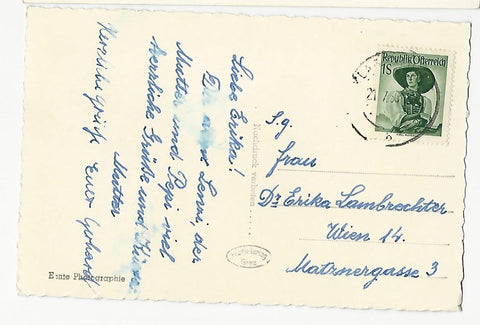 Liebe Erika!
Dir und Lenvi, der
Mutter und Papi viel
herzliche Grüße und Küsse
Mutter
Herzliche Grüße Euer Gerhard
Echte Photographie
Nachdruck verboten
Republik Österreich
1S
S.g.
Frau
Dr Erika Lambrechter
Wien 14.
Matznergasse 3